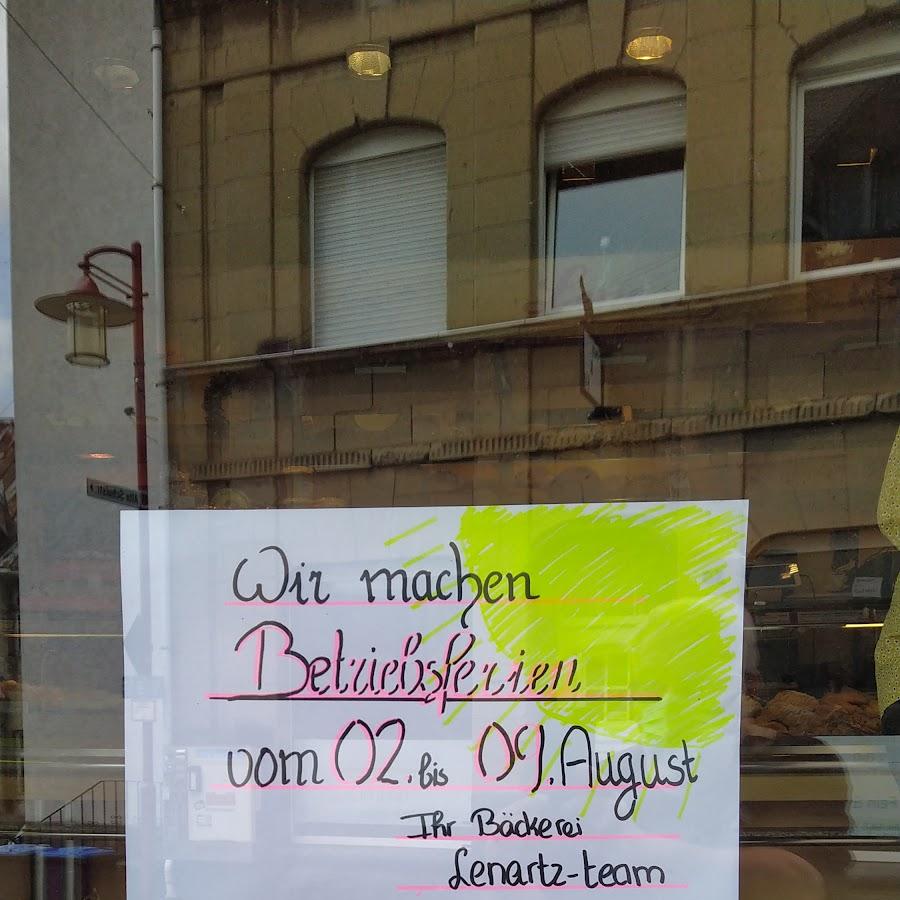 Wir machen
Betriebsferien
vom 02. bis 09. August
Ihr Bäckerei
Lenartz-team